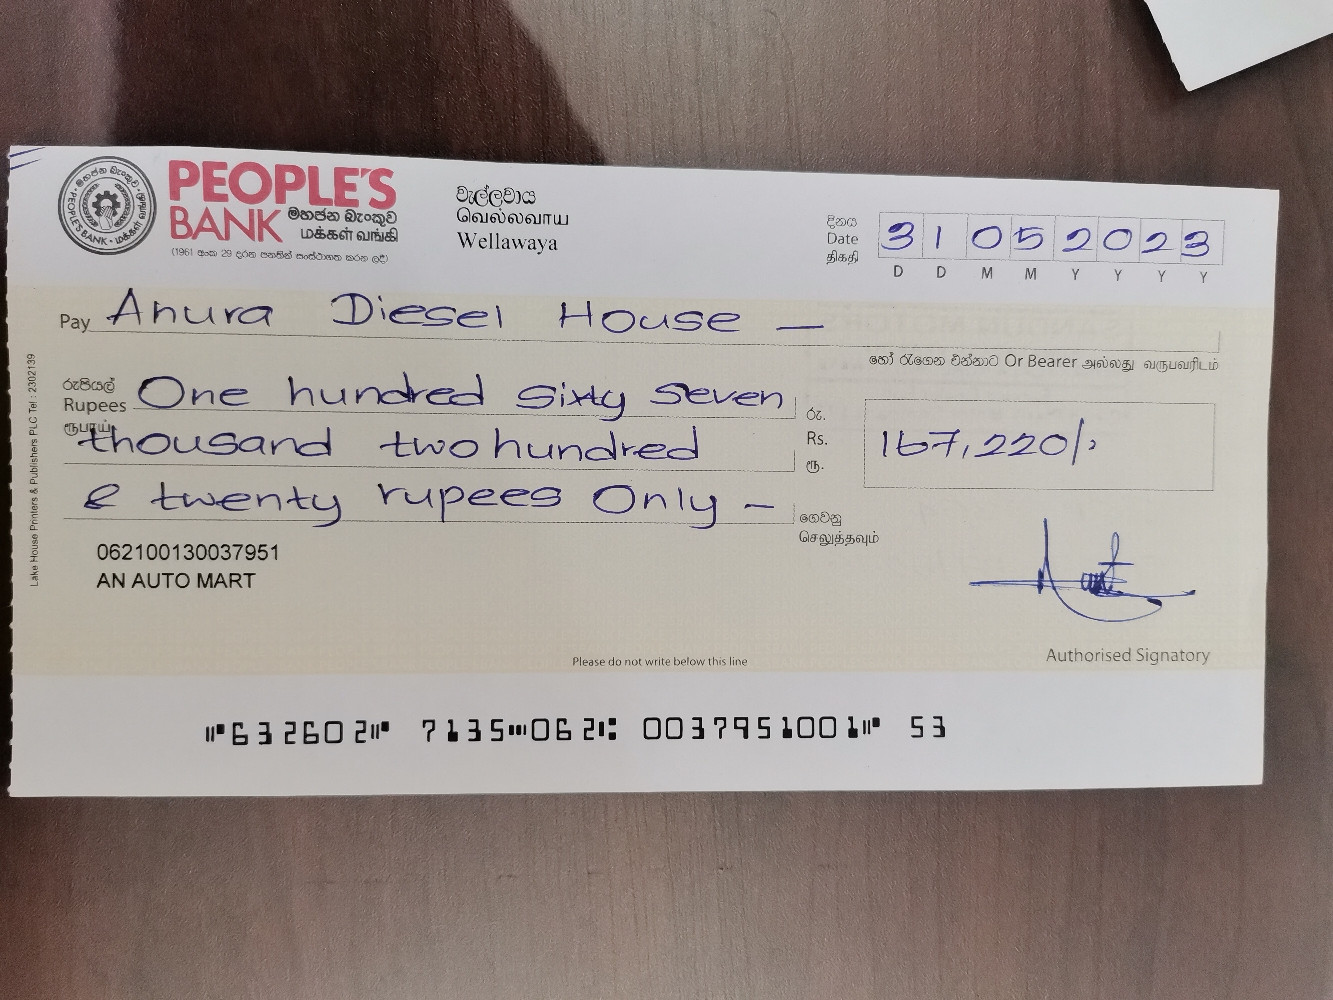 PEOPLE'S
BANK මහජන බැංකුව
மக்கள் வங்கி
(1961 අංක 29 දරන පනතින් සංස්ථාගත කරන ලදී)
වැල්ලවාය
வெல்லவாய
Wellawaya
දිනය
Date
திகதி
3 1 0 5 2 0 2 3
D D M M Y Y Y Y
Pay Anura Diesel House —
හෝ රැගෙන එන්නාට Or Bearer அல்லது வருபவரிடம்
රුපියල්
Rupees
ரூபாய்
One hundred sixty seven
thousand two hundred
& twenty rupees Only —
රු.
Rs.
ரூ.
167,220/-
ගෙවනු
செலுத்தவும்
062100130037951
AN AUTO MART
Authorised Signatory
Please do not write below this line
⑈632602⑈ 7135⑉062⑆ 0037951001⑈ 53
Lake House Printers & Publishers PLC Tel : 2302139
මහජන බැංකුව
PEOPLE'S BANK
மக்கள் வங்கி